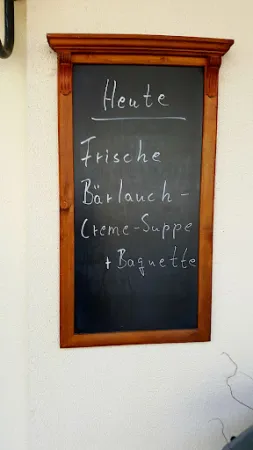 Heute
Frische
Bärlauch-
Creme-Suppe
+ Baguette